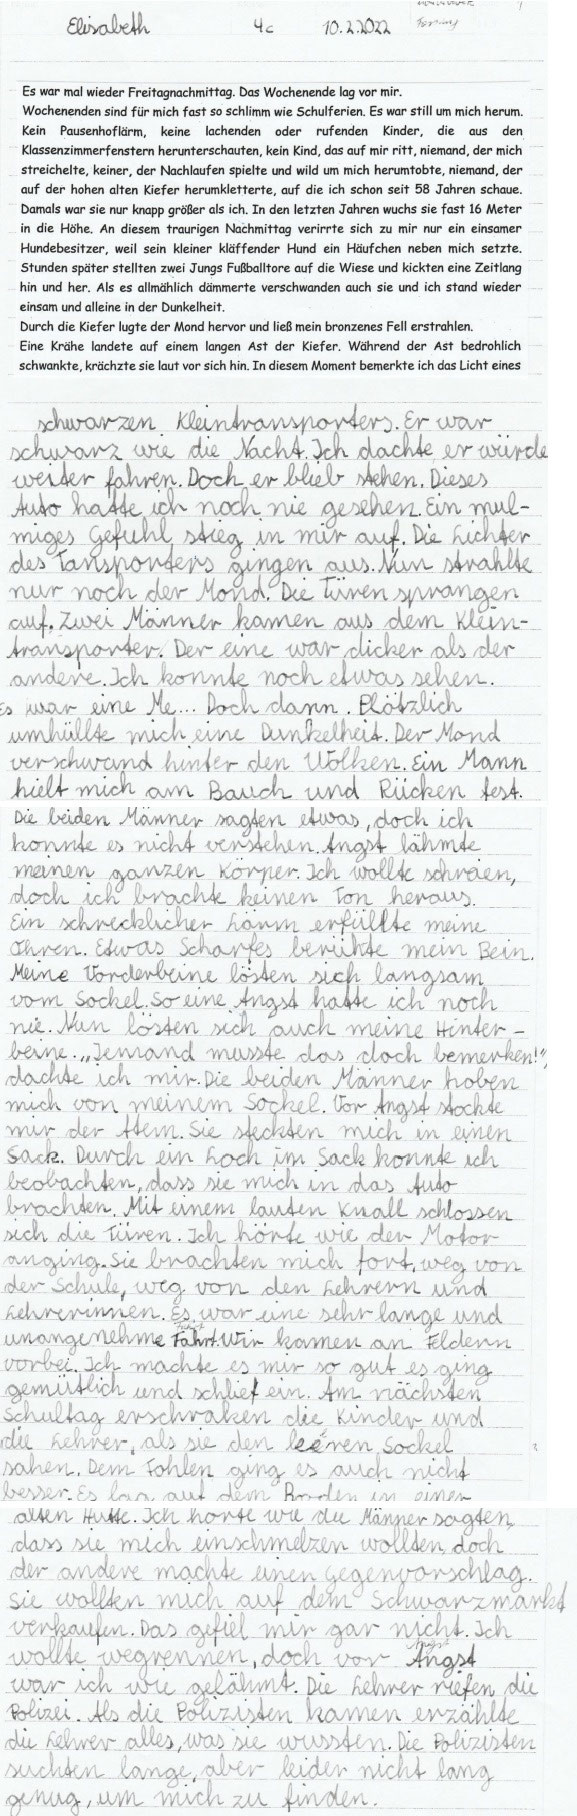 Elisabeth 4c 10.2.2022
Es war mal wieder Freitagnachmittag. Das Wochenende lag vor mir.
Wochenenden sind für mich fast so schlimm wie Schulferien. Es war still um mich herum.
Kein Pausenhoflärm, keine lachenden oder rufenden Kinder, die aus den
Klassenzimmerfenstern herunterschauten, kein Kind, das auf mir ritt, niemand, der mich
streichelte, keiner, der Nachlaufen spielte und wild um mich herumtobte, niemand, der
auf der hohen alten Kiefer herumkletterte, auf die ich schon seit 58 Jahren schaue.
Damals war sie nur knapp größer als ich. In den letzten Jahren wuchs sie fast 16 Meter
in die Höhe. An diesem traurigen Nachmittag verirrte sich zu mir nur ein einsamer
Hundebesitzer, weil sein kleiner kläffender Hund ein Häufchen neben mich setzte.
Stunden später stellten zwei Jungs Fußballtore auf die Wiese und kickten eine Zeitlang
hin und her. Als es allmählich dämmerte verschwanden auch sie und ich stand wieder
einsam und alleine in der Dunkelheit.
Durch die Kiefer lugte der Mond hervor und ließ mein bronzenes Fell erstrahlen.
Eine Krähe landete auf einem langen Ast der Kiefer. Während der Ast bedrohlich
schwankte, krächzte sie laut vor sich hin. In diesem Moment bemerkte ich das Licht eines
schwarzen Kleintransporters. Er war
schwarz wie die Nacht. Ich dachte er würde
weiter fahren. Doch er blieb stehen. Dieses
Auto hatte ich noch nie gesehen. Ein mul-
miges Gefühl stieg in mir auf. Die Lichter
des Tansporters gingen aus. Nun strahlte
nur noch der Mond. Die Türen sprangen
auf. Zwei Männer kamen aus dem Klein-
transporter. Der eine war dicker als der
andere. Ich konnte noch etwas sehen.
Es war eine Me... Doch dann. Plötzlich
umhüllte mich eine Dunkelheit. Der Mond
verschwand hinter den Wolken. Ein Mann
hielt mich am Bauch und Rücken fest.
Die beiden Männer sagten etwas, doch ich
konnte es nicht verstehen. Angst lähmte
meinen ganzen Körper. Ich wollte schreien,
doch ich brachte keinen Ton heraus.
Ein schrecklicher Lärm erfüllte meine
Ohren. Etwas Scharfes berührte mein Bein.
Meine Vorderbeine lösten sich langsam
vom Sockel. So eine Angst hatte ich noch
nie. Nun lösten sich auch meine Hinter-
beine. „Jemand musste das doch bemerken!",
dachte ich mir. Die beiden Männer hoben
mich von meinem Sockel. Vor Angst stockte
mir der Atem. Sie steckten mich in einen
Sack. Durch ein Loch im Sack konnte ich
beobachten, dass sie mich in das Auto
brachten. Mit einem lauten Knall schlossen
sich die Türen. Ich hörte wie der Motor
anging. Sie brachten mich fort, weg von
der Schule, weg von den Lehrern und
Lehrerinnen. Es war eine sehr lange und
unangenehme Fahrt. Wir kamen an Feldern
vorbei. Ich machte es mir so gut es ging
gemütlich und schlief ein. Am nächsten
Schultag erschraken die Kinder und
die Lehrer, als sie den leeren Sockel
sahen. Dem Fohlen ging es auch nicht
besser. Es lag auf dem Boden in einer
alten Hütte. Ich hörte wie die Männer sagten,
dass sie mich einschmelzen wollten, doch
der andere machte einen Gegenvorschlag.
Sie wollten mich auf dem Schwarzmarkt
verkaufen. Das gefiel mir gar nicht. Ich
wollte wegrennen, doch vor Angst
war ich wie gelähmt. Die Lehrer riefen die
Polizei. Als die Polizisten kamen erzählte
die Lehrer alles, was sie wussten. Die Polizisten
suchten lange, aber leider nicht lang
genug, um mich zu finden.